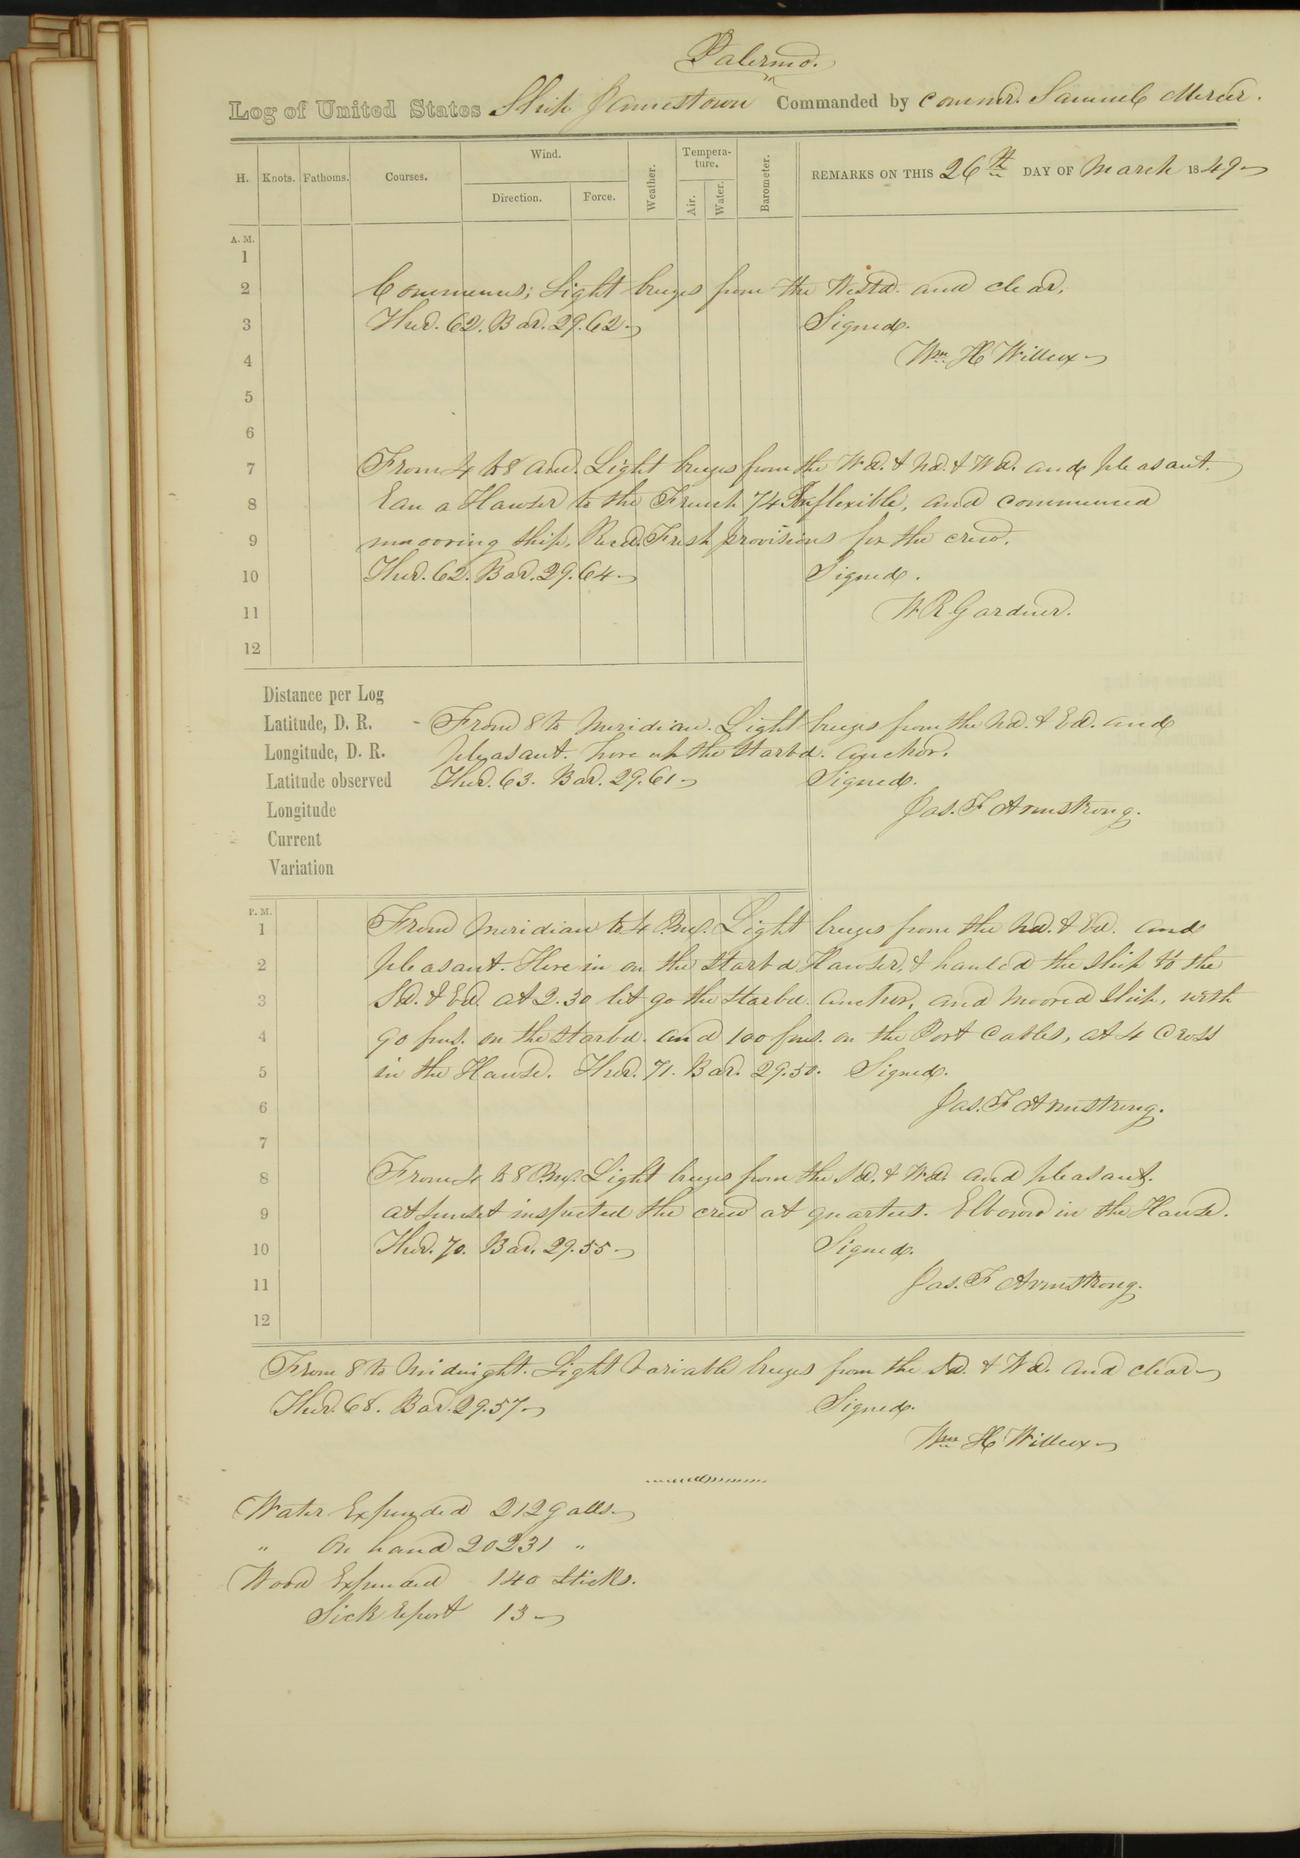 Palermo.
Log of United States Ship Jamestown Commanded by Commr. Samuel Mercer.
H. Knots. Fathoms. Courses. Wind. Direction. Force. Weather. Tempera-ture. Air. Water. Barometer. REMARKS ON THIS 26th DAY OF March 1849
A. M.
1
2 Commences; Light breezes from the Westd. and clear.
3 Ther. 62. Bar. 29.62 Signed.
4 Wm. H Willcox
5
6
7 From 4 to 8 am. Light breezes from the Wd. & Nd. & Wd. and pleasant.
8 Ran a Hawser to the French 74 Inflexible, and commenced
9 mooring ship. Recd. Fresh provisions for the crew.
10 Ther. 62. Bar. 29.64 Signed.
11 W R Gardner.
12
Distance per Log
Latitude, D. R. From 8 to Meridian. Light breezes from the Nd. & Ed. and
Longitude, D. R. pleasant. hove up the starbd. anchor.
Latitude observed Ther. 63. Bar. 29.61 Signed.
Longitude Jas. F Armstrong.
Current
Variation
P. M.
1 From Meridian to 4 P.m. Light breezes from the Nd. & Ed. and
2 pleasant. Hove in on the starbd Hawser, & hauled the ship to the
3 Sd. & Ed. at 2.30 let go the starbd. anchor, and moored ship, with
4 90 fms. on the starbd. and 100 fms. on the Port Cables, at 4 Cross
5 in the Hawse. Ther. 71. Bar. 29.50. Signed.
6 Jas. F Armstrong.
7
8 From 4 to 8 P.m. Light breezes from the Sd. & Wd. and pleasant.
9 at sunset inspected the crew at quarters. Elbow in the Hawse.
10 Ther. 70. Bar. 29.55 Signed.
11 Jas. F Armstrong.
12
From 8 to Midnight. Light variable breezes from the Sd. & Wd. and clear
Ther. 68. Bar. 29.57 Signed.
Wm. H Willcox
Water Expended 212 galls.
" On hand 20231 "
Wood Expended 140 sticks.
Sick Report 13